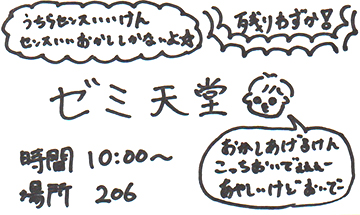 うちらセンスいいけん
センスいいおかししかないよ☆
残りわずか!
ゼミ天堂
おかしあげるけん
こっちおいでぇぇぇー
あやしいけどおいでー
時間 10:00〜
場所 206